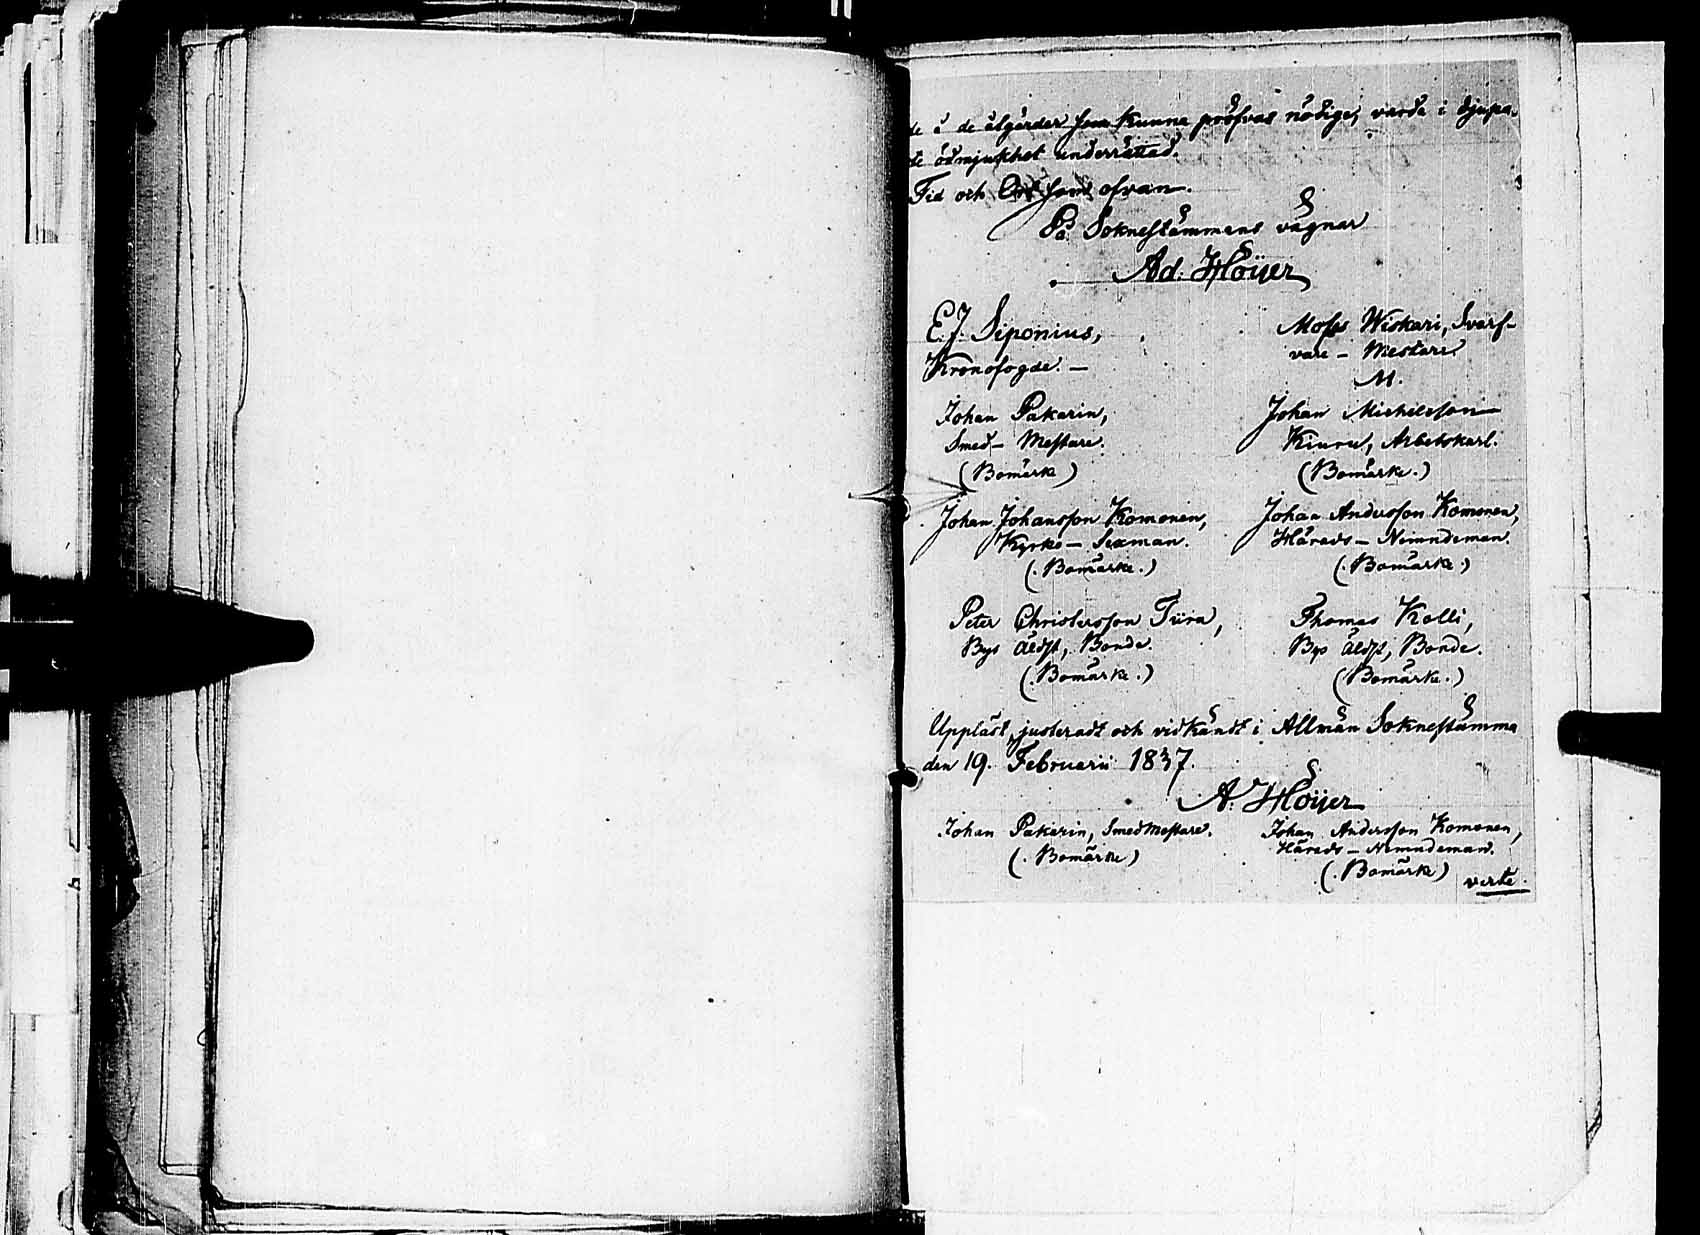 de å de åtgärder som kunna pröfvas nödige, varda i djupa-
de ödmjukhet underrättad.
Tid och Ort som ofvan.
På Soknestämmans vägnar
Ad. Höijer
E. J. Siponius,
Kronofogde. —
Moses Wiskari, Svarf-
vare - Mestare.
M.
Johan Pakarin,
Smed - Mestare.
(Bomärke)
Johan Michelsson
Kiuru, Arbetskarl.
(Bomärke.)
Johan Johansson Komonen,
Kyrko - Sexman.
(. Bomärke.)
Johan Andersson Komonen,
Härads - Nämndeman.
(. Bomärke.)
Peter Christersson Tiira,
Bys äldst, Bonde.
(. Bomärke.)
Thomas Kolli,
Bys äldst, Bonde.
(Bomärke.)
Uppläst, justeradt och vidkändt i Allmän Soknestämma
den 19. Februarii 1837.
A. Höijer
Johan Pakarin, Smedmestare.
(. Bomärke)
Johan Andersson Komonen,
Härads - Nemndeman.
(. Bomärke)
verte.